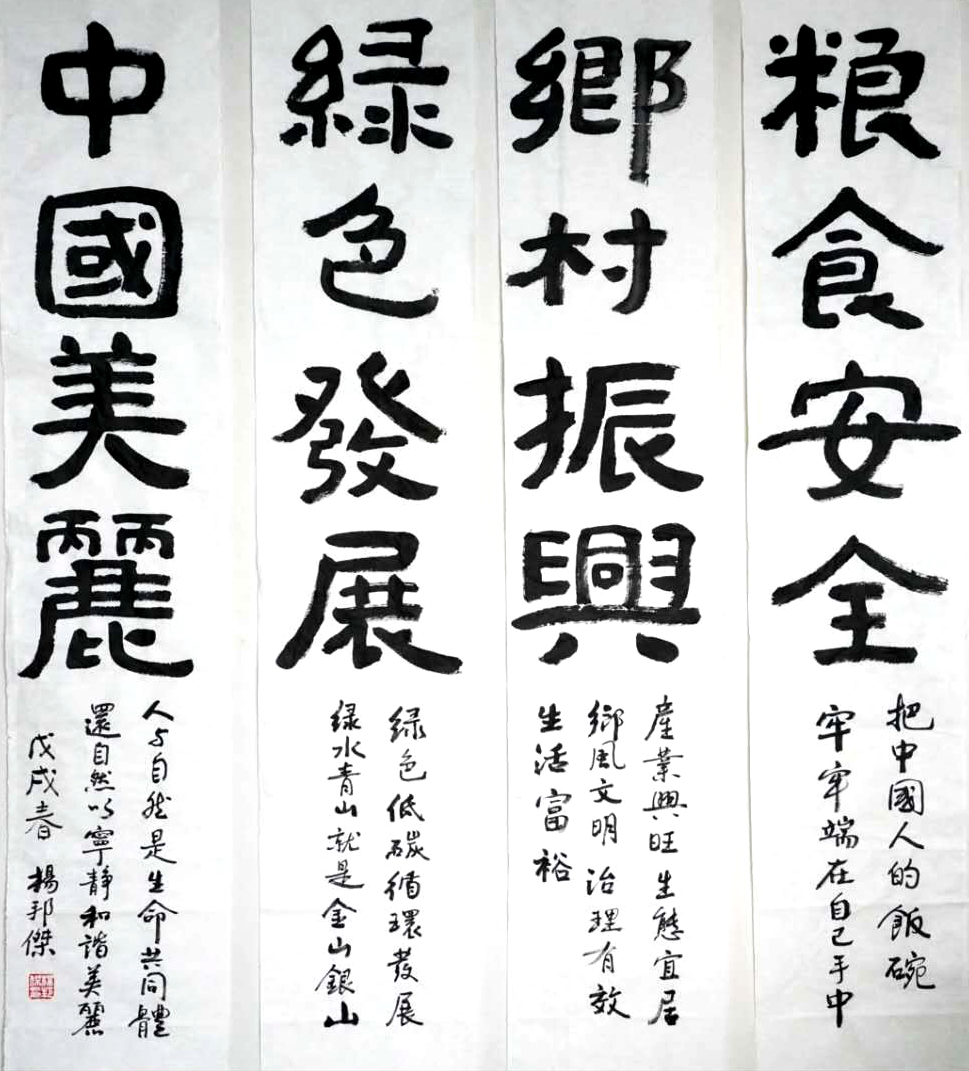 粮食安全
把中國人的飯碗
牢牢端在自己手中
鄉村振興
産業興旺生態宜居
鄉風文明治理有效
生活富裕
綠色發展
綠色低碳循環發展
綠水青山就是金山銀山
中國美麗
人与自然是生命共同體
還自然以寧靜和諧美麗
戊戌春 楊邦傑